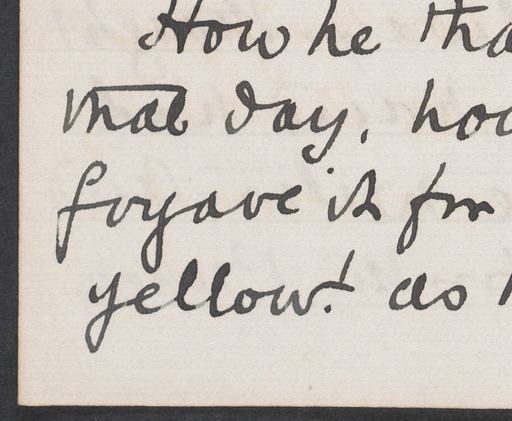 How he tha
that day, hoo
forgave it for
yellow! as